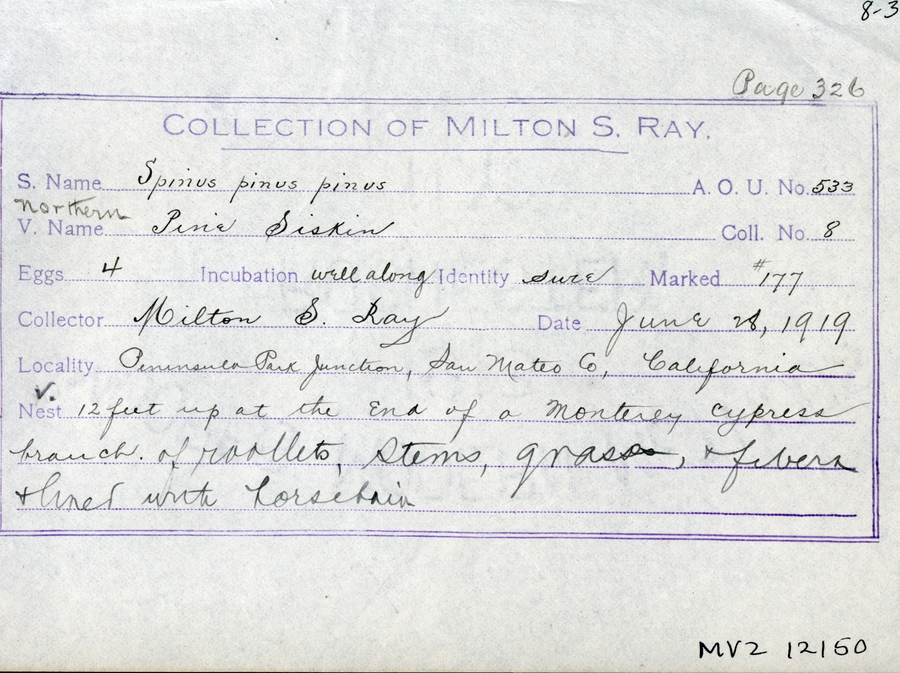 8-3
Page 326
COLLECTION OF MILTON S. RAY.
S. Name Spinus pinus pinus A. O. U. No. 533
Northern
V. Name Pine Siskin Coll. No. 8
Eggs 4 Incubation well along Identity sure Marked #177
Collector Milton S. Ray Date June 28, 1919
Locality Peninsula Park Junction, San Mateo Co, California
v.
Nest 12 feet up at the End of a Monterey cypress
branch. of rootlets, stems, grass, & fibers
& lined with horsehair
MVZ 12150